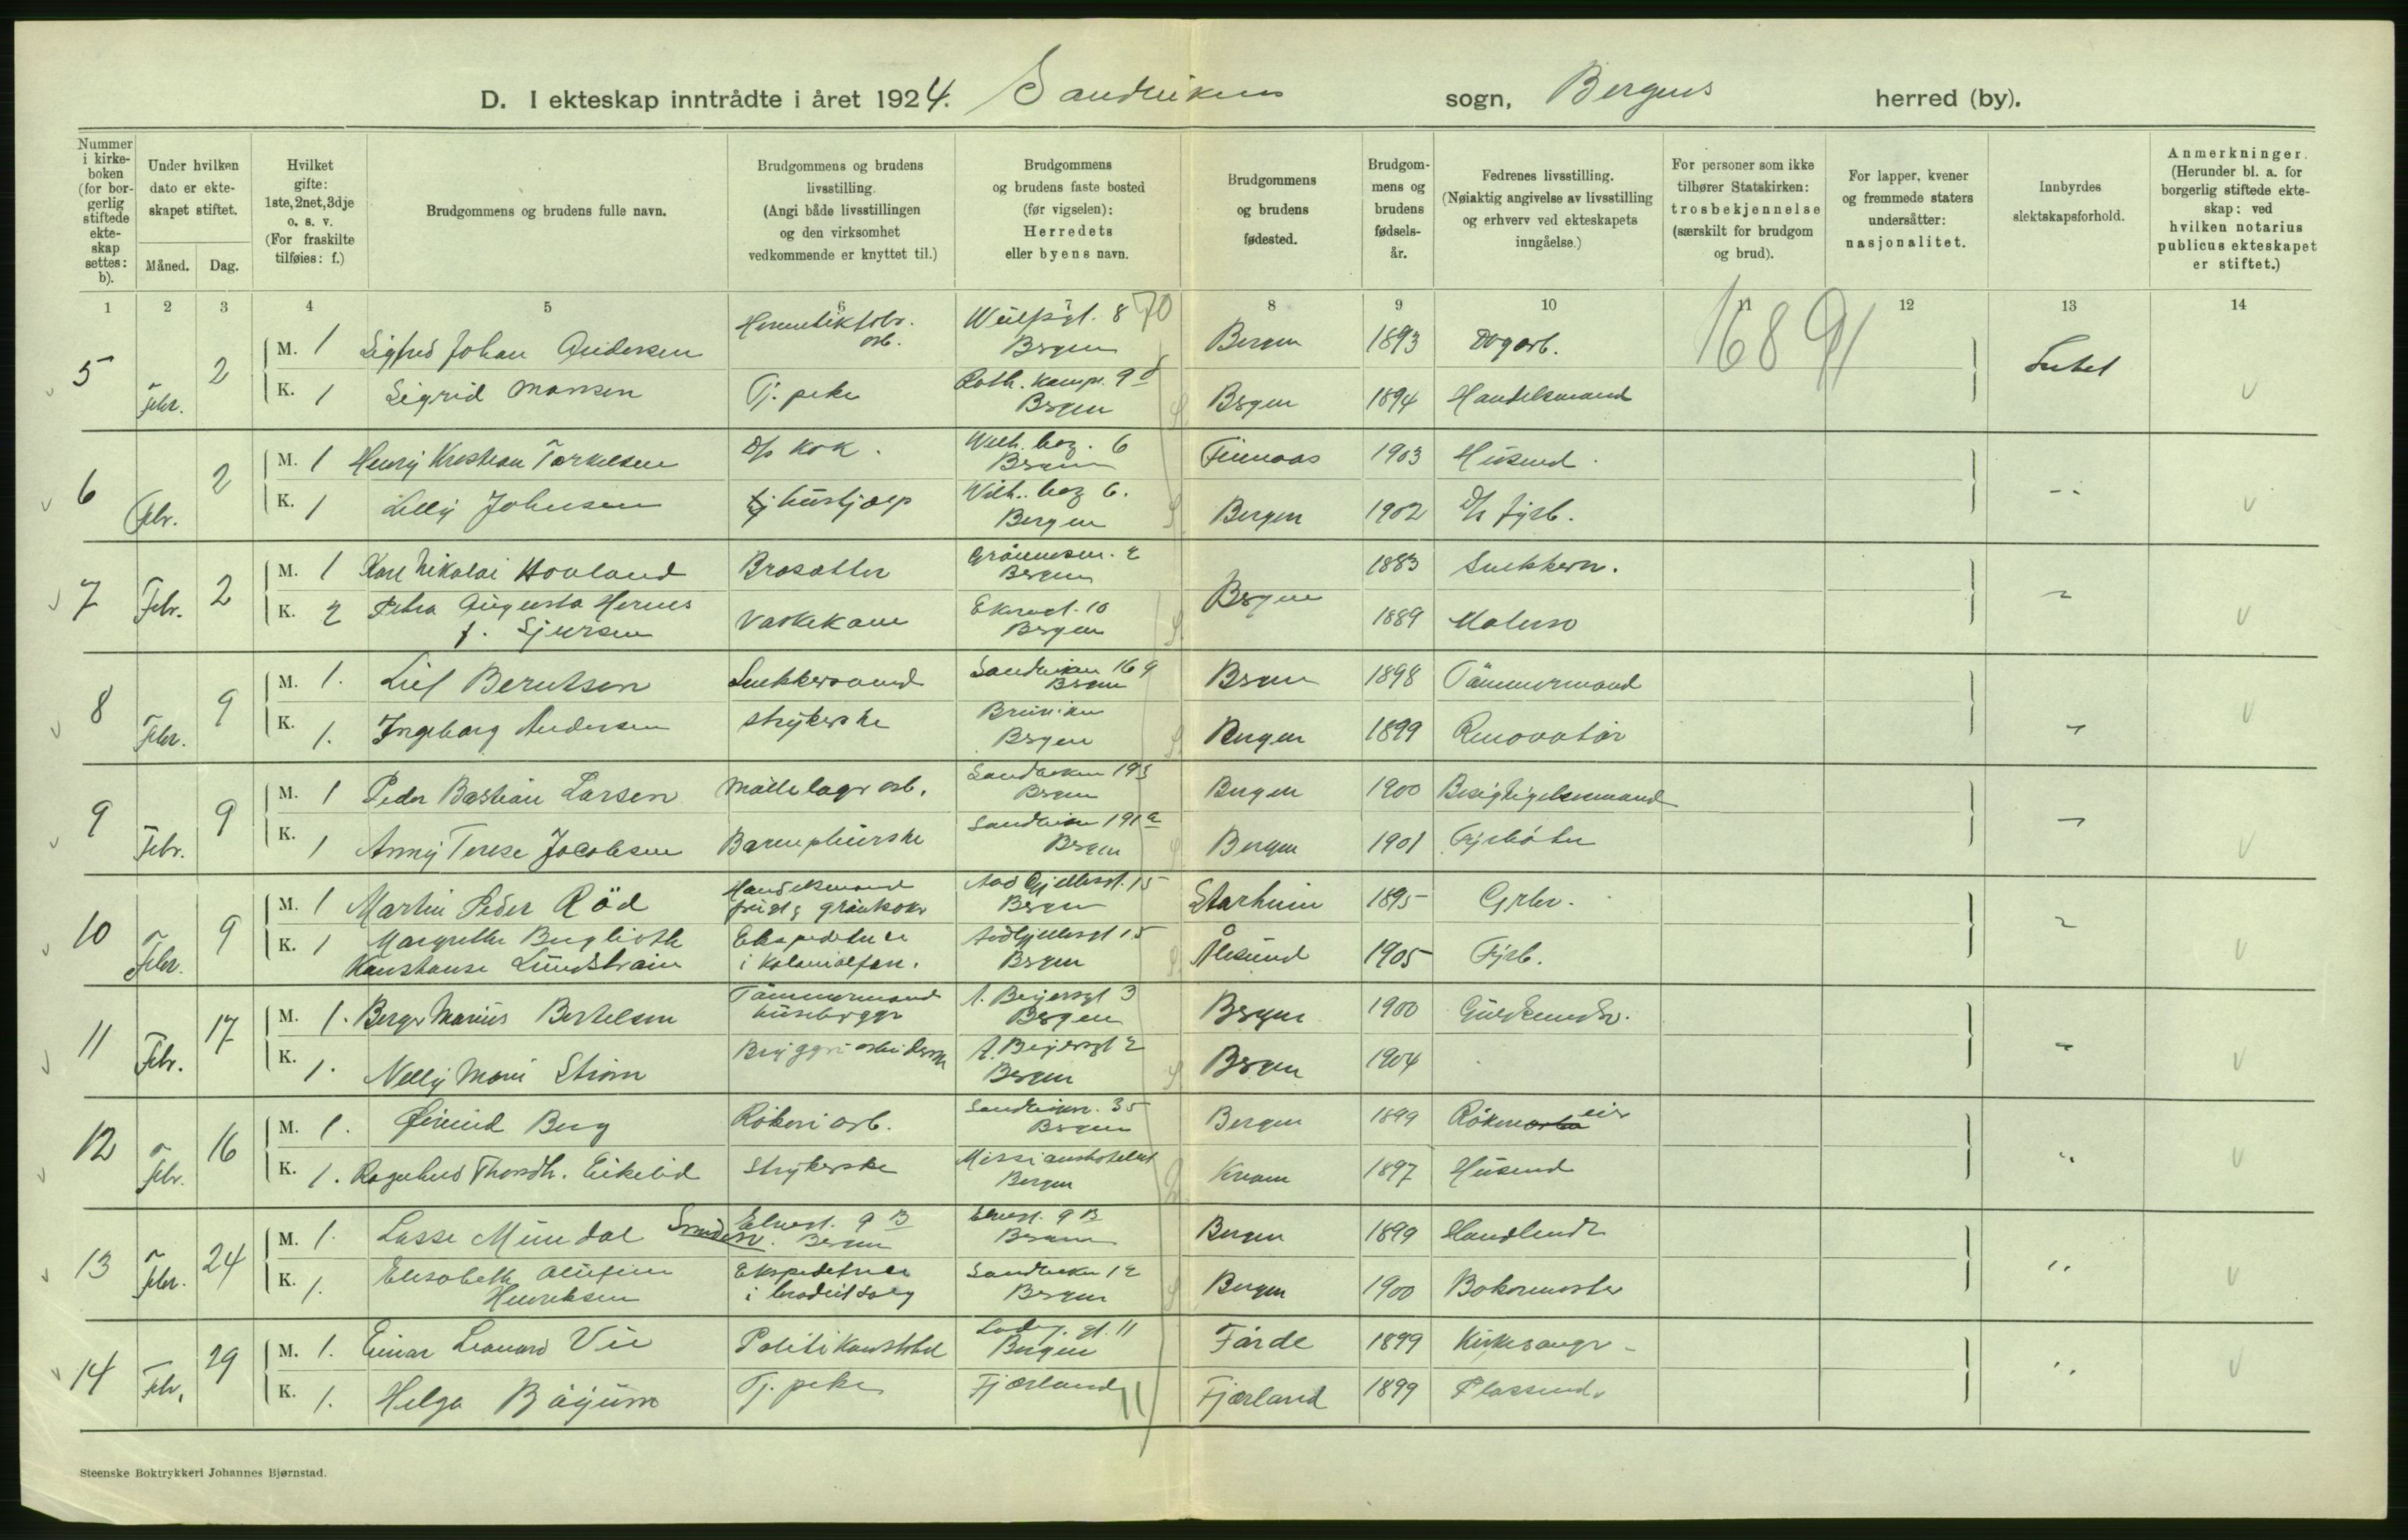 D. I ekteskap inntrådte i året 1924. Sandviken sogn, Bergens herred (by).
Nummer i kirke- boken (for bor- gerlig stiftede ekte- skap settes: b).
Under hvilken dato er ekte- skapet stiftet.
Måned. Dag.
Hvilket gifte: 1ste, 2net, 3dje o. s. v. (For fraskilte tilføies: f.)
Brudgommens og brudens fulle navn.
Brudgommens og brudens livsstilling. (Angi både livsstillingen og den virksomhet vedkommende er knyttet til.)
Brudgommens og brudens faste bosted (før vigselen): Herredets eller byens navn.
Brudgommens og brudens fødested.
Brudgom- mens og brudens fødsels- år.
Fedrenes livsstilling. (Nøiaktig angivelse av livsstilling og erhverv ved ekteskapets inngåelse.)
For personer som ikke tilhører Statskirken: trosbekjennelse (særskilt for brudgom og brud).
For lapper, kvener og fremmede staters undersåtter: nasjonalitet.
Innbyrdes slektskapsforhold.
Anmerkninger. (Herunder bl. a. for borgerlig stiftede ekte- skap: ved hvilken notarius publicus ekteskapet er stiftet.)
1 2 3 4 5 6 7 8 9 10 11 12 13 14
70 1689
5 Febr. 2 M. 1 Sigfred Johan Andersen Hermetikfabr. arb. 8 Bergen Bergen 1893 Dagarb. Intet
K. 1 Sigrid Monsen Tj. pike Bergen Bergen 1894 Handelsmand
6 Febr. 2 M. 1 Henry Kristian Torkelsen D/s kok. 6 Bergen Finnaas 1903 Husmd.
K. 1 Lilly Johnsen hushjælp 6. Bergen Bergen 1902 D/s fyrb.
7 Febr. 2 M. 1 Karl Nikolai Hovland Brosætter Bergen Bergen 1883 Snekkerm.
K. 2 Petra Augusta Hernes f. Sjursen Vaskekone 10 Bergen 1889 Malersv
8 Febr. 9 M. 1. Leif Berntsen Snekkersvend Sandviken 169 Bergen Bergen 1898 Tømmermand
K. 1. Ingeborg Andersen Strykerske Bergen Bergen 1899 Renovatør
9 Febr. 9 M. 1 Peder Bastian Larsen Møllelager arb. Sandviken 193 Bergen Bergen 1900 Besigtigelsesmand
K. 1 Anny Terese Jacobsen Barnepleierske Sandviken 191a Bergen Bergen 1901 Fyrbøter
10 Febr. 9 M. 1 Martin Peder Rød Handelsmand frugt & grønsaker 15 Bergen Starheim 1895 Grbr.
K. 1 Margrethe Berglioth Konstanse Lundstrøm Ekspeditrice i kolonialforr. 15 Bergen Ålesund 1905 Fyrb.
11 Febr. 17 M. 1. Berger Marius Bertelsen Tømmermand husbygger A. Beyersgt 3 Bergen Bergen 1900 Guldsmedsv.
K. 1. Nelly Marie Strøm Bryggeriarbeiderske A. Beyersgt 2 Bergen Bergen 1904
12 Febr. 16 M. 1. Øivind Berg Røkeri arb. Sandviken. 35 Bergen Bergen 1899 Røkerieier
K. 1. Ragnhild Thordh. Eikelid Strykerske Missionshotellet Bergen Kvam 1897 Husmd
13 Febr. 24 M. 1. Lasse Mundal Elvegt. 9 B Bergen Elvegt. 9 B Bergen Bergen 1899 Handlende
K. 1. Elisabeth Olufine Henriksen Ekspeditrice i brødutsalg Sandviken 12 Bergen Bergen 1900 Bakermester
14 Febr. 29 M. 1. Einar Leonard Vie Politikonstabel 11 Bergen Førde 1899 Kirkesanger
K. 1. Helga Bøyum Tj. pike Fjærland Fjærland 1899 Plassmd.
11
Steenske Boktrykkeri Johannes Bjørnstad.